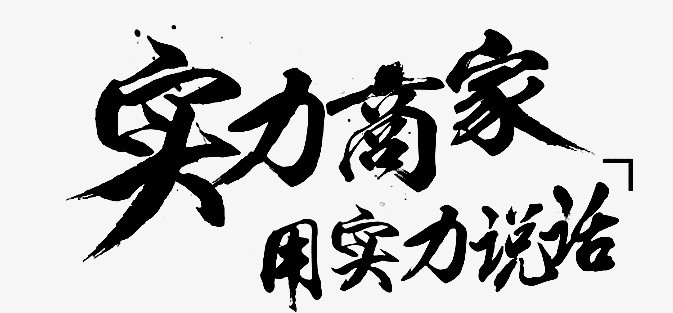 实力商家
用实力说话